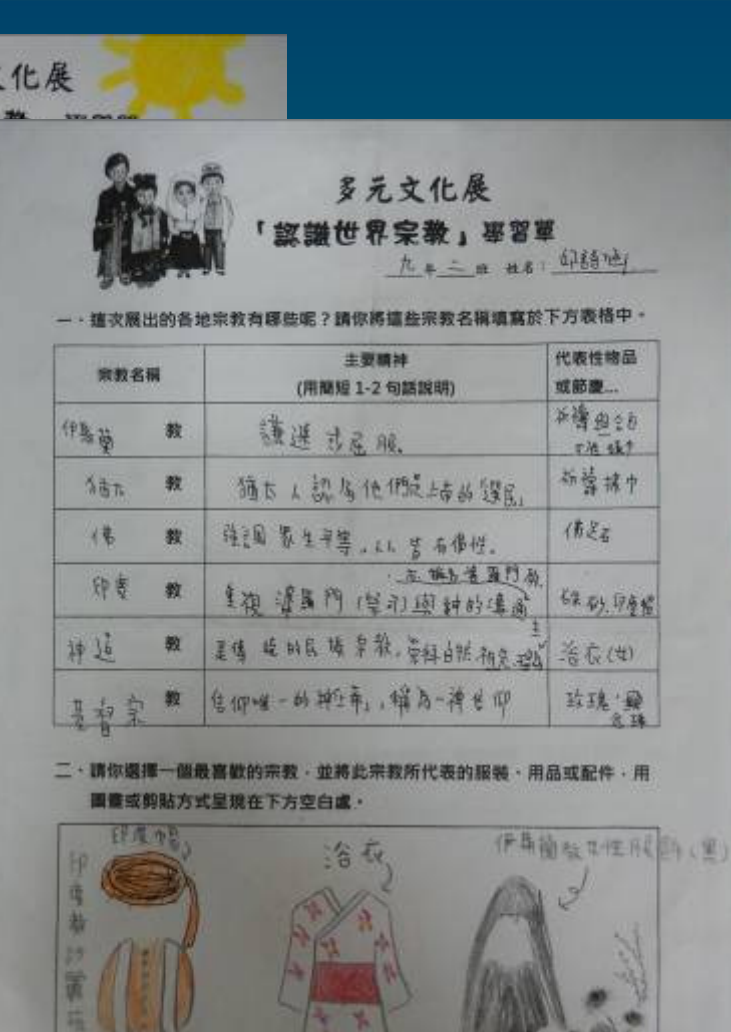 化展
多元文化展
「認識世界宗教」學習單
九年二班 姓名：邱詩涵
一、這次展出的各地宗教有哪些呢？請你將這些宗教名稱填寫於下方表格中。
宗教名稱 主要精神 代表性物品
(用簡短 1-2 句話說明) 或節慶...
伊斯蘭 教 謙遜 求屈服。
猶太 教 猶太人認為他們是上帝的「選民」 祈禱披巾
佛 教 強調眾生平等，人人皆有佛性。 佛足石
印度 教 重視 婆羅門(祭司)與神的溝通 硃砂、印度帽
神道 教 是傳統的民族宗教，崇拜自然 浴衣(女)
基督宗 教 信仰唯一的神「上帝」，稱為一神信仰 玫瑰念珠
二、請你選擇一個最喜歡的宗教，並將此宗教所代表的服裝、用品或配件，用
圖畫或剪貼方式呈現在下方空白處。
印度帽
浴衣
伊斯蘭教女性服飾(黑)
印度教沙麗